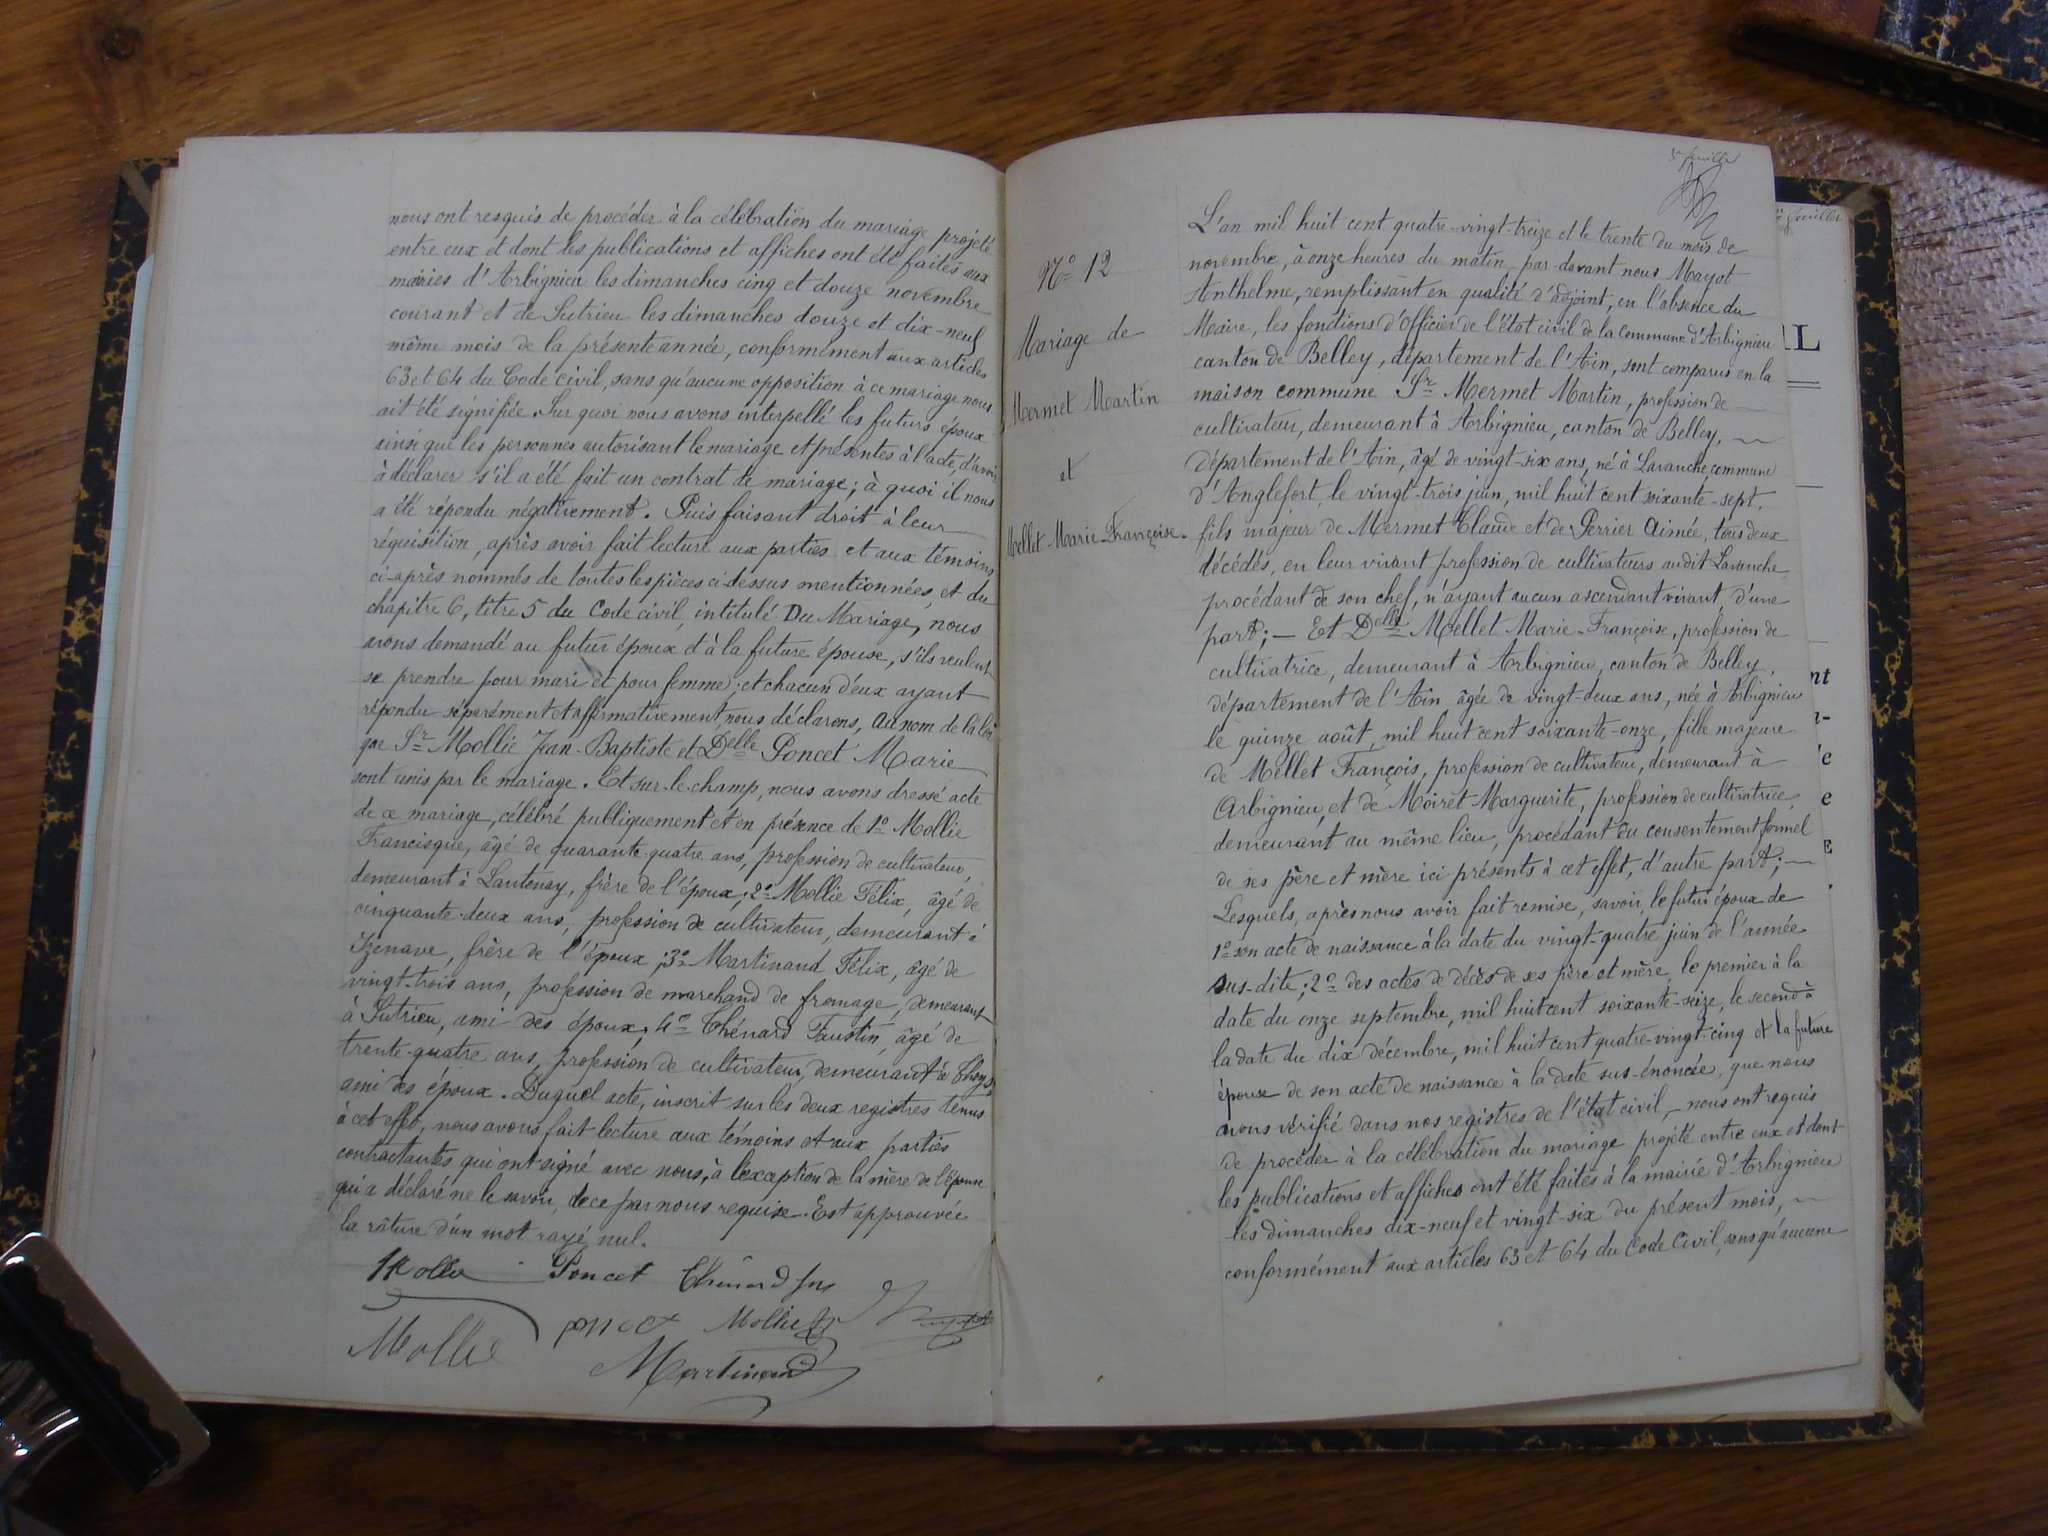 nous ont resquis de procéder à la célébration du mariage projeté
entre eux et dont les publications et affiches ont été faites aux
mairies d'Arbignieu les dimanches cinq et douze novembre
courant et de Sutrieu les dimanches douze et dix-neuf
même mois de la présente année, conformément aux articles
63 et 64 du Code civil, sans qu'aucune opposition à ce mariage nous
ait été signifiée. Sur quoi nous avons interpellé les futurs époux
ainsi que les personnes autorisant le mariage et présentes à l'acte, d'avoir
à déclarer s'il a été fait un contrat de mariage; à quoi il nous
a été répondu négativement. Puis faisant droit à leur
réquisition, après avoir fait lecture aux parties et aux témoins
ci-après nommés de toutes les pièces ci-dessus mentionnées, et du
chapitre 6, titre 5 du Code civil, intitulé Du Mariage, nous
avons demandé au futur époux et à la future épouse, s'ils veulent
se prendre pour mari et pour femme; et chacun d'eux ayant
répondu séparément et affirmativement, nous déclarons, au nom de la loi
que Sr Mollie Jean-Baptiste et Delle Poncet Marie
sont unis par le mariage. Et sur-le-champ, nous avons dressé acte
de ce mariage, célébré publiquement et en présence de 1° Mollie
Francisque, âgé de quarante-quatre ans, profession de cultivateur,
demeurant à Lantenay, frère de l'époux; 2° Mollie Félix, âgé de
cinquante-deux ans, profession de cultivateur, demeurant à
Izenave, frère de l'époux; 3° Martinand Félix, âgé de
vingt-trois ans, profession de marchand de fromage, demeurant
à Sutrieu, ami des époux; 4° Thénard Faustin, âgé de
trente-quatre ans, profession de cultivateur, demeurant à Thoys
ami des époux. Duquel acte, inscrit sur les deux registres tenus
à cet effet, nous avons fait lecture aux témoins et aux parties
contractantes qui ont signé avec nous, à l'exception de la mère de l'épouse
qui a déclaré ne le savoir, de ce par nous requise. Est approuvée
la râture d'un mot rayé nul.
Mollie Poncet Thénard
Mollie poncet Mollie
Martinand
5e feuillet
N° 12
Mariage de
Mermet Martin
et
Mellet Marie-Françoise.
L'an mil huit cent quatre-vingt-treize et le trente du mois de
novembre, à onze heures du matin, par-devant nous Mayot
Anthelme, remplissant en qualité d'adjoint, en l'absence du
Maire, les fonctions d'Officier de l'état civil de la commune d'Arbignieu
canton de Belley, département de l'Ain, sont comparus en la
maison commune Sr Mermet Martin, profession de
cultivateur, demeurant à Arbignieu, canton de Belley,
département de l'Ain, âgé de vingt-six ans, né à Lavanche commune
d'Anglefort, le vingt-trois juin, mil huit cent soixante-sept,
fils majeur de Mermet Claude et de Perrier Aimée, tous deux
décédés, en leur vivant profession de cultivateurs audit Lavanche,
procédant de son chef, n'ayant aucun ascendant vivant, d'une
part; — Et Delle Mellet Marie-Françoise, profession de
cultivatrice, demeurant à Arbignieu, canton de Belley,
département de l'Ain, âgée de vingt-deux ans, née à Arbignieu
le quinze août, mil huit cent soixante-onze, fille majeure
de Mellet François, profession de cultivateur, demeurant à
Arbignieu, et de Moiret Marguerite, profession de cultivatrice,
demeurant au même lieu, procédant du consentement formel
de ses père et mère ici présents à cet effet, d'autre part;
Lesquels, après nous avoir fait remise, savoir, le futur époux de
1° son acte de naissance à la date du vingt-quatre juin de l'année
sus-dite; 2° des actes de décès de ses père et mère, le premier à la
date du onze septembre, mil huit cent soixante-seize, le second à
la date du dix décembre, mil huit cent quatre-vingt-cinq et la future
épouse de son acte de naissance à la date sus-énoncée, que nous
avons vérifié dans nos registres de l'état civil, nous ont requis
de procéder à la célébration du mariage projeté entre eux et dont
les publications et affiches ont été faites à la mairie d'Arbignieu
les dimanches dix-neuf et vingt-six du présent mois,
conformément aux articles 63 et 64 du Code Civil, sans qu'aucune